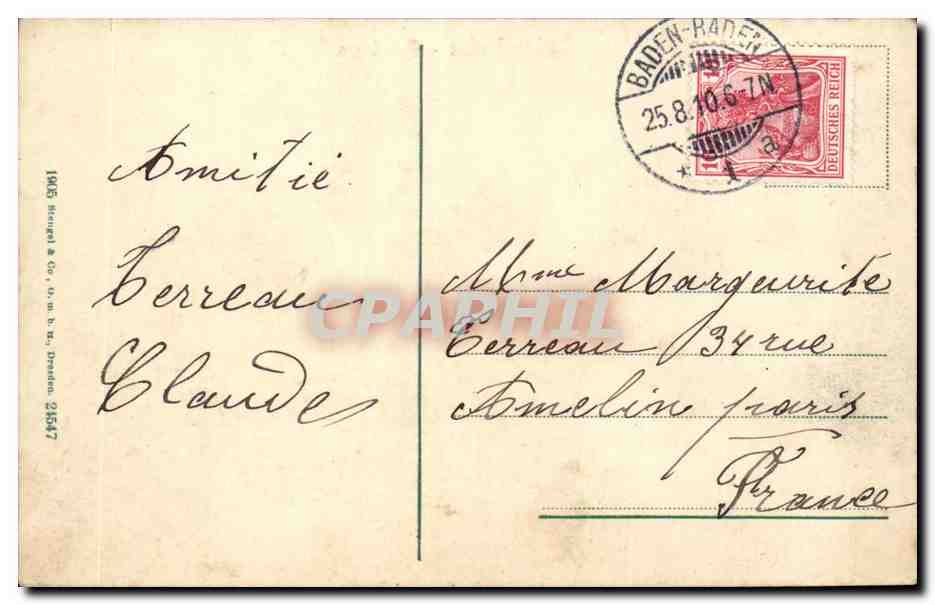 Amitié
Terreau
Claude
1905 Stengel & Co., G. m. b. H., Dresden. 24547
BADEN-BADEN
25.8.10.6-7N
* 1 a
10
DEUTSCHES REICH
Mme Margeurite
Terreau 34 rue
Amelin paris
France
CPAPHIL